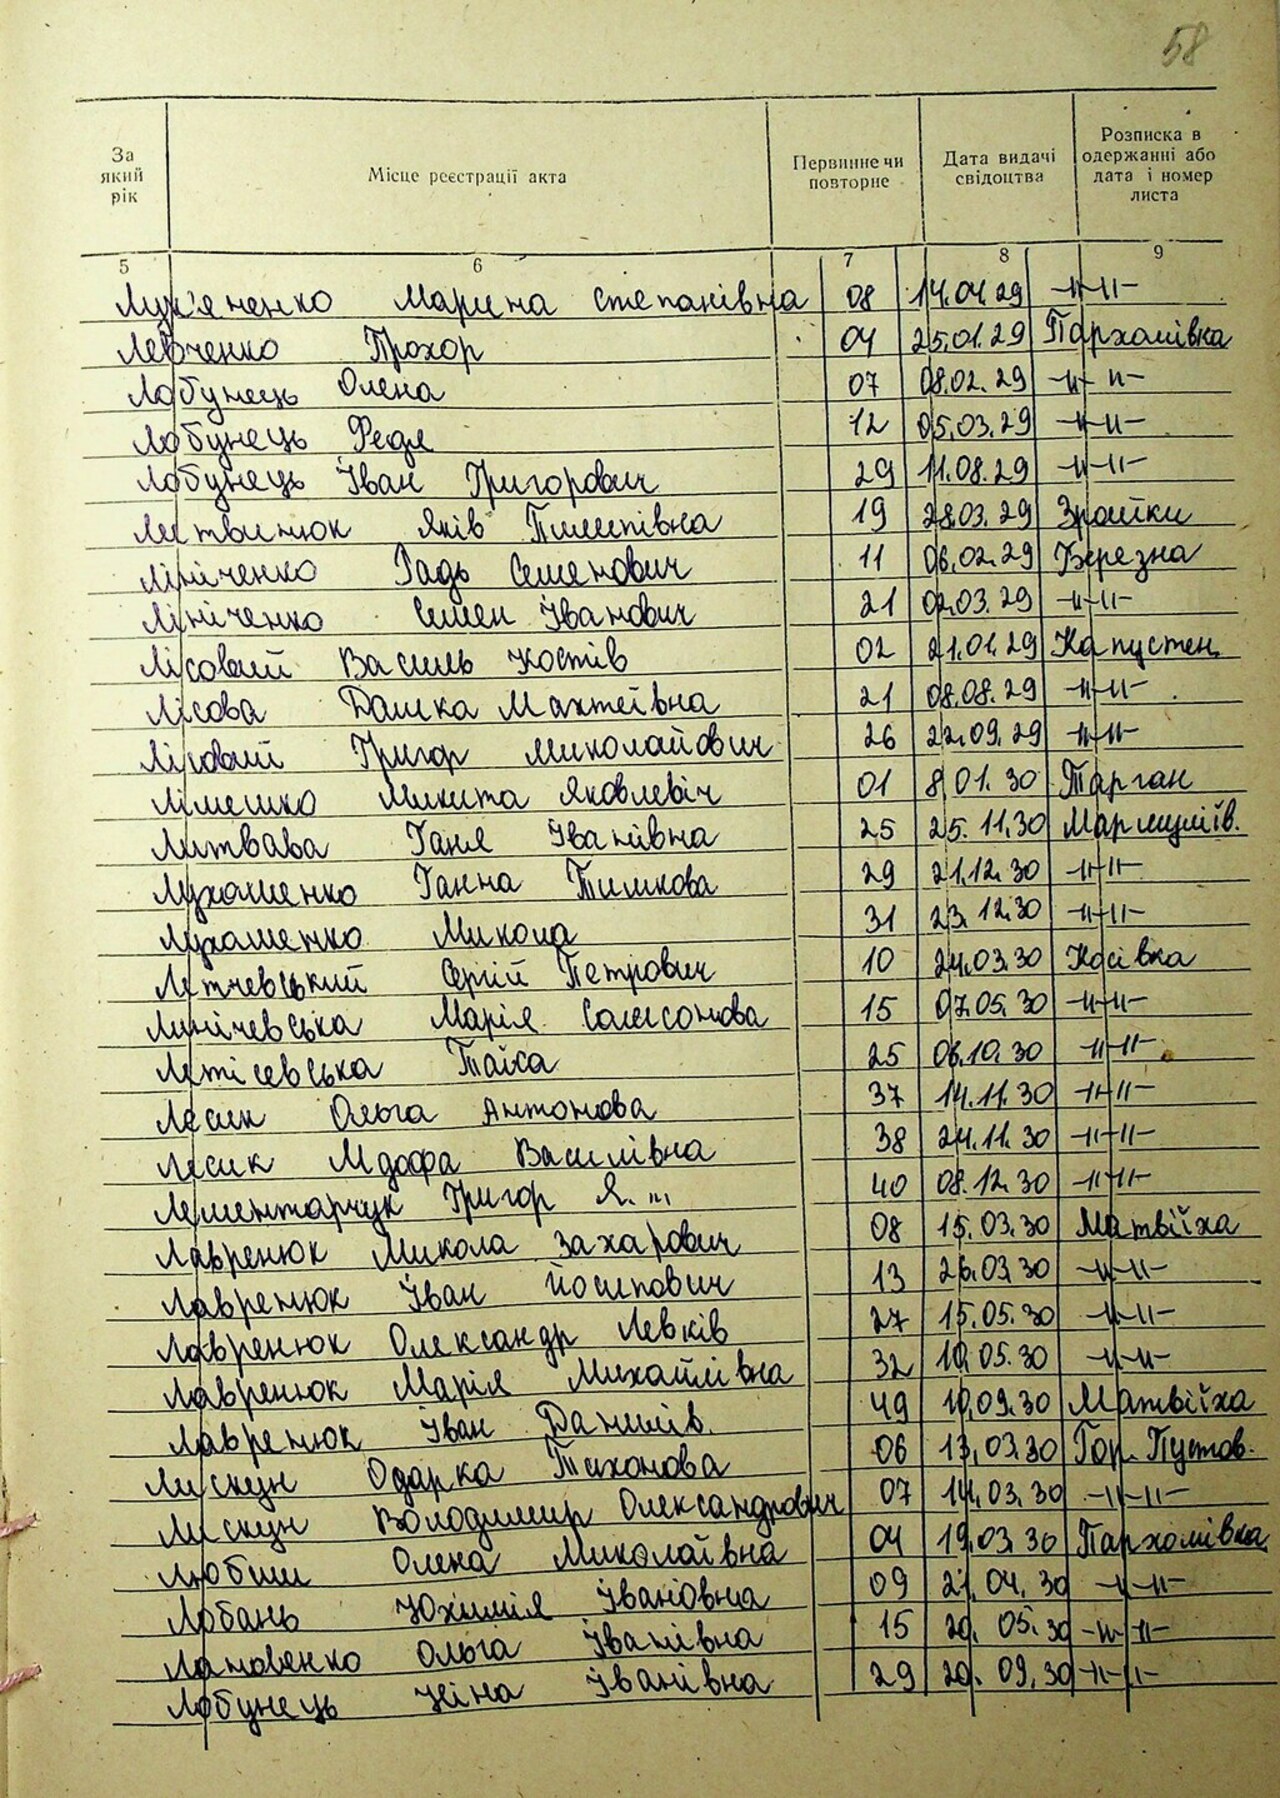 58
За який рік
Місце реєстрації акта
Первинне чи повторне
Дата видачі свідоцтва
Розписка в одержанні або дата і номер листа
5 6 7 8 9
Лук'яненко Марина Степанівна 08 14.04.29 -"-"-
Левченко Прохор 04 25.01.29 Пархомівка
Лобунець Олена 07 08.02.29 -"-"-
Лобунець Федя 12 05.03.29 -"-"-
Лобунець Іван Григорович 29 11.08.29 -"-"-
Литвинюк Яків Пилипівна 19 28.03.29 Зрайки
Лініченко Гадь Семенович 11 06.02.29 Березна
Лініченко Семен Іванович 21 02.03.29 -"-"-
Лісовий Василь Костів 02 21.01.29 Капустен.
Лісова Домка Махтеївна 21 08.08.29 -"-"-
Лісовий Григор Миколайович 26 22.09.29 -"-"-
Лімешко Микита Яковлевіч 01 8.01.30 Тарган
Литвава Ганя Іванівна 25 25.11.30 Мармуліїв.
Лухаменко Ганна Тимкова 29 21.12.30 -"-"-
Лухаменко Микола 31 23.12.30 -"-"-
Летчевський Сергій Петрович 10 24.03.30 Косівка
Линічевська Марія Самсонова 15 07.05.30 -"-"-
Летісевська Таїса 25 06.10.30 -"-"-
Лесик Ольга Антонова 37 14.11.30 -"-"-
Лесик Мдофа Василівна 38 24.11.30 -"-"-
Лементарчук Григор Я... 40 08.12.30 -"-"-
Лавренюк Микола Захарович 08 15.03.30 Матвіїха
Лавренюк Іван Йосипович 13 26.03.30 -"-"-
Лавренюк Олександр Левків 27 15.05.30 -"-"-
Лавренюк Марія Михайлівна 32 10.05.30 -"-"-
Лавренюк Іван Данилів. 49 10.09.30 Матвіїха
Лискун Одарка Тихонова 06 13.03.30 Гор. Пустов.
Лискун Володимир Олександрович 07 14.03.30 -"-"-
Любиш Олена Миколаївна 04 19.03.30 Пархомівка
Лобань Юхимія Івановна 09 21.04.30 -"-"-
Лановенко Ольга Іванівна 15 20.05.30 -"-"-
Лобунець Ніна Іванівна 29 20.09.30 -"-"-